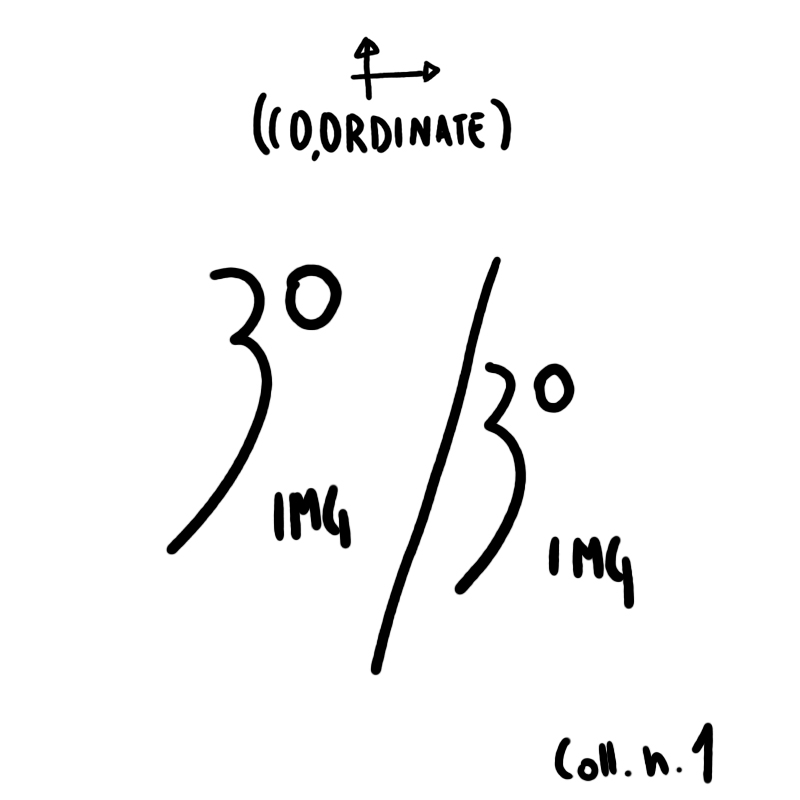 (CO,ORDINATE)
3° / 3°
IMG IMG
Coll. n. 1